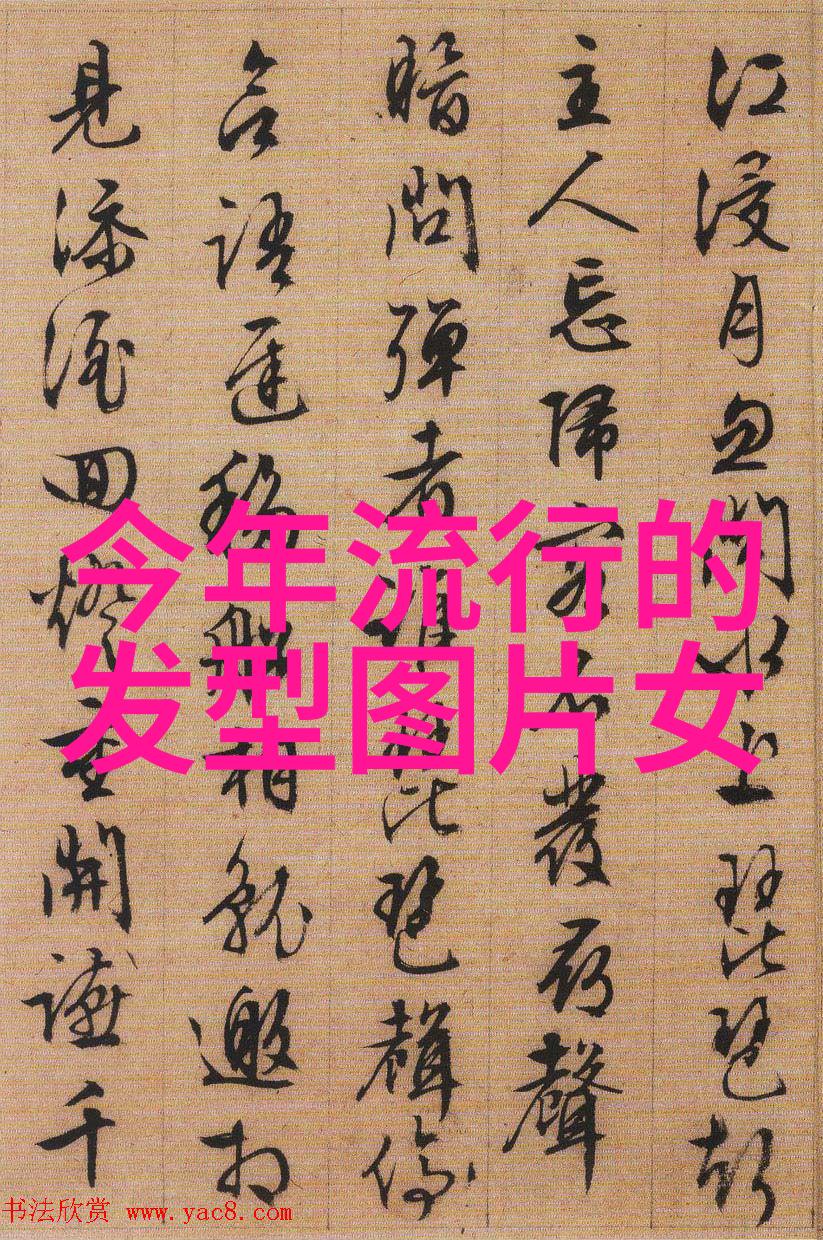 江浸月忽聞水上琵琶聲
主人忘歸客不發尋聲
暗問彈者誰琵琶聲停
語遲移船相就邀相
見添酒回燈重開讌千
今年流行的
发型图片女
书法欣赏 www.yac8.com